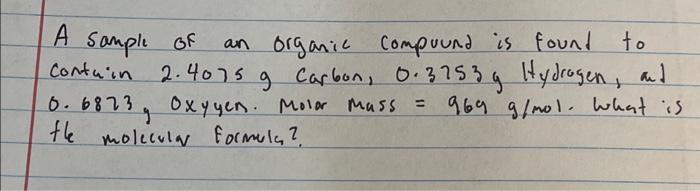 A sample of an organic compound is found to
contain 2.4075 g Carbon, 0.3753 g Hydrogen, and
0.6823 g Oxygen. Molar Mass = 969 g/mol. What is
the molecular formula?